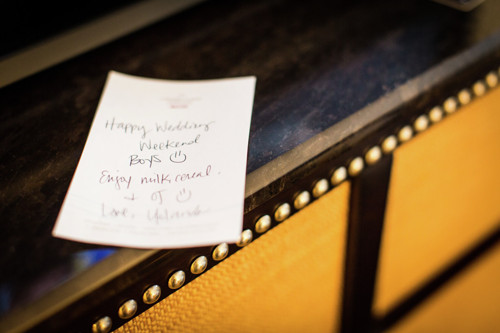 Happy Wedding
Weekend
BOYS
Enjoy milk, cereal.
+ OJ
Love,